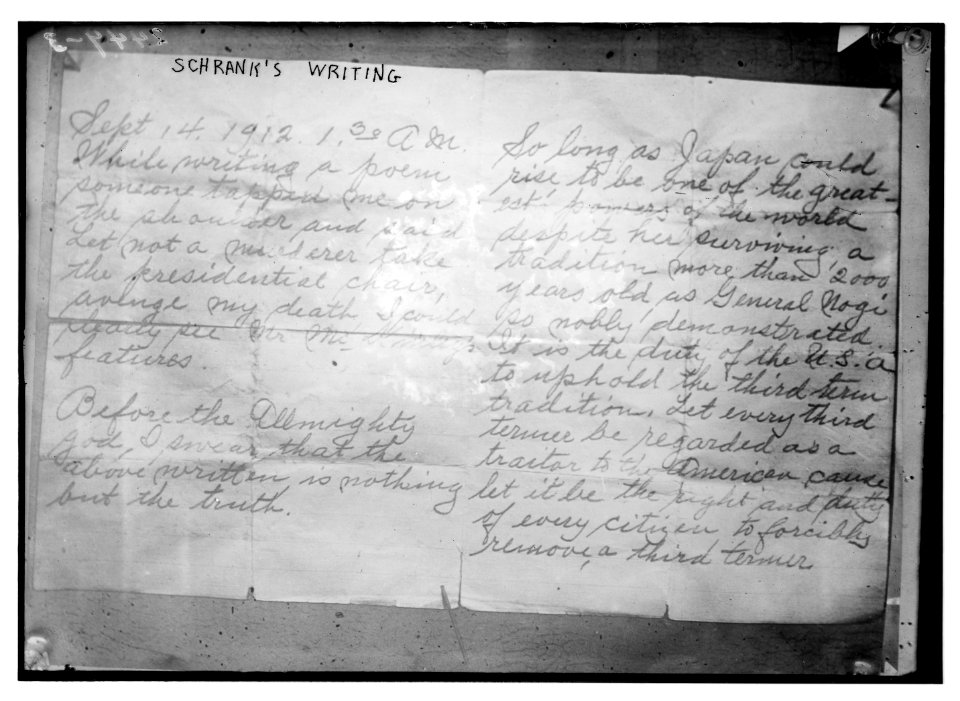 2449-3
SCHRANK'S WRITING
Sept 14. 1912. 1.30 A M.
While writing a poem
someone tapped me on
the shoulder and said
Let not a murderer take
the presidential chair,
avenge my death I could
see Mr Mc Kinleys
features.
Before the Allmighty
god, I swear that the
above written is nothing
but the truth.
So long as Japan could
rise to be one of the great-
est powers of the world
despite her surviving a
tradition more than 2000
years old as General Nogi
so nobly demonstrated.
It is the duty of the U.S.A
to uphold the third term
tradition. Let every third
termer be regarded as a
traitor to the American cause
let it be the right and duty
of every citizen to forcibly
remove a third termer